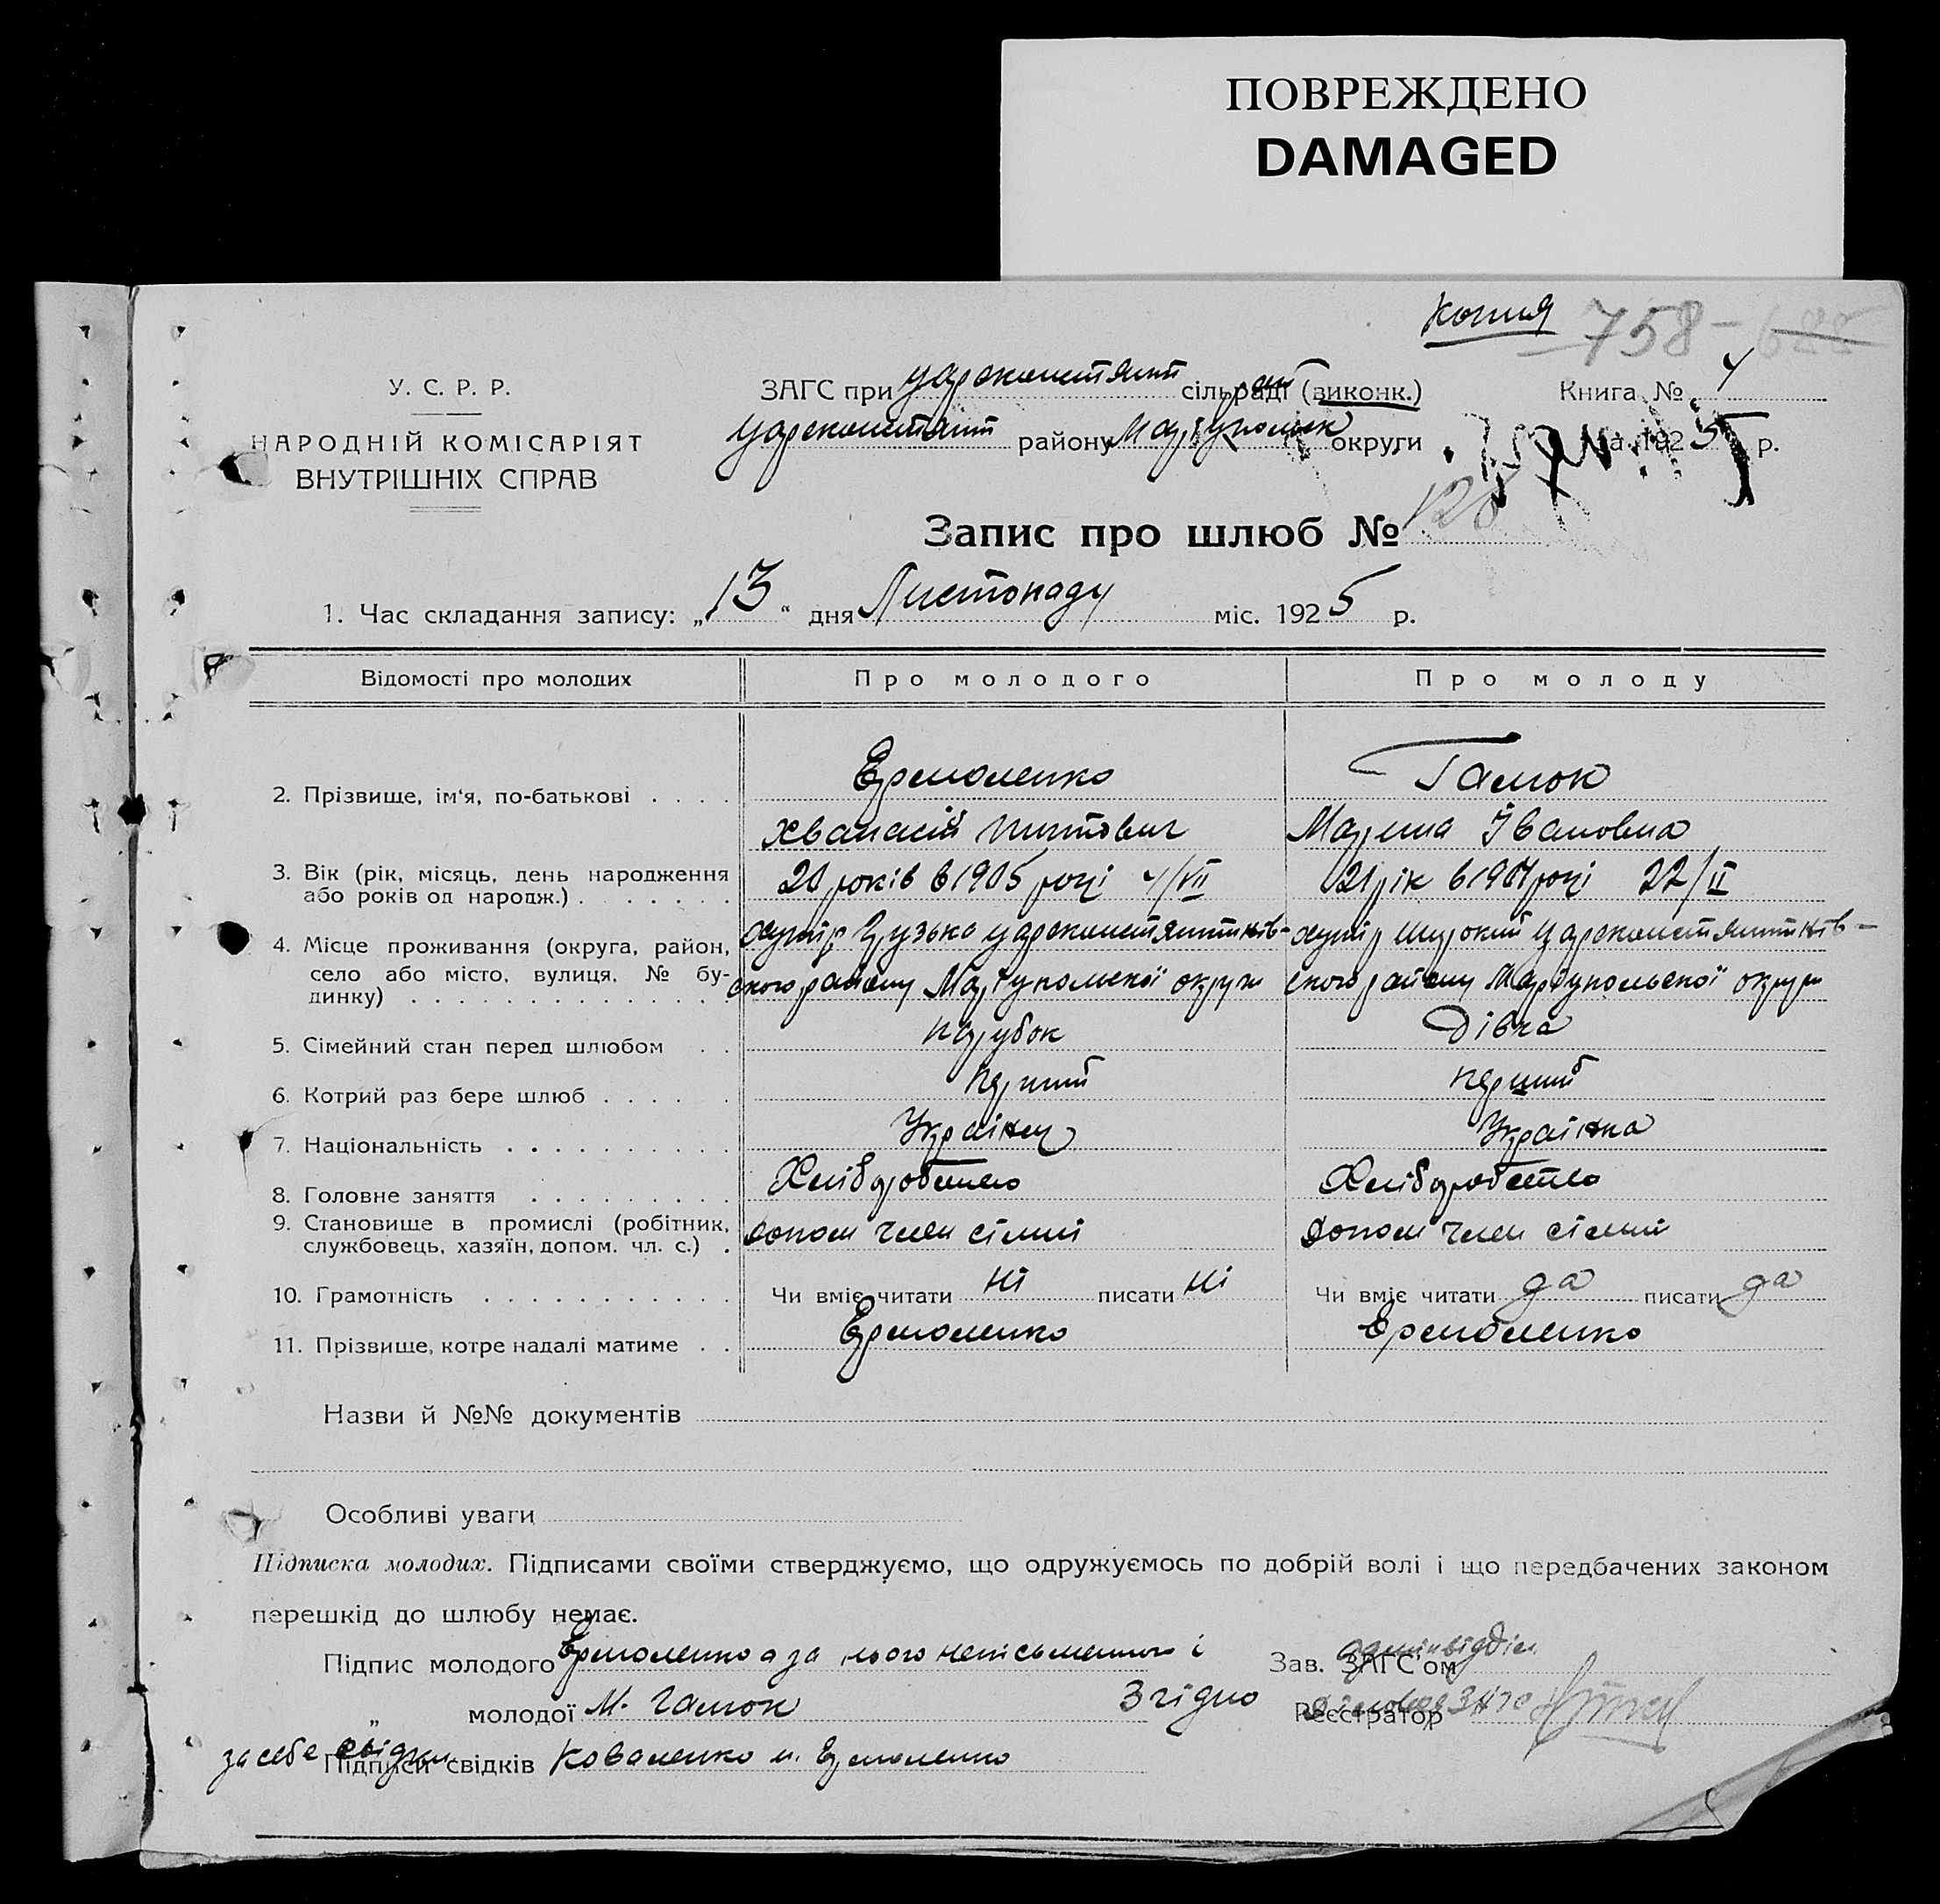 ПОВРЕЖДЕНО
DAMAGED
Копия 758 - 688
У. С. Р. Р.
ЗАГС при Царєконстянт сільраді (виконк.) Книга № 4
НАРОДНІЙ КОМІСАРІЯТ
ВНУТРІШНІХ СПРАВ
Царєконстянт району Маріупольск округи на 1925 р.
Запис про шлюб № 120
1. Час складання запису: „13“ дня Листопаду міс. 1925 р.
Відомості про молодих Про молодого Про молоду
2. Прізвище, ім'я, по-батькові . . . . Ермоленко Гамок
Хванасій Титович Марина Івановна
3. Вік (рік, місяць, день народження або років од народж.) . . . . . . . 20 років в 1905 році 4/VII 21 рік в 1904 році 22/II
4. Місце проживання (округа, район, село або місто, вулиця, № будинку) . . . . . . . . . . . . . .
хутір Грузька Царєконстянтинів- хутір Широкий Царєконстянтинів-
ского району Маріупольскої округи ского району Маріупольскої округи
5. Сімейний стан перед шлюбом . . Парубок Дівка
6. Котрий раз бере шлюб . . . . . Перший перший
7. Національність . . . . . . . . . . Українец Українка
8. Головне заняття . . . . . . . . . Хліборобство Хліборобство
9. Становище в промислі (робітник, службовець, хазяїн, допом. чл. с.) . допом член сімиі допом член сімиі
10. Грамотність . . . . . . . . . . . Чи вміє читати ні писати ні Чи вміє читати да писати да
11. Прізвище, котре надалі матиме . . Ермоленко Ермоленко
Назви й №№ документів
Особливі уваги
Підписка молодих. Підписами своїми стверджуємо, що одружуємось по добрій волі і що передбачених законом
перешкід до шлюбу немає.
Підпис молодого Ермоленко а за його неписьменного і Зав. ЗАГС'ом адмінвідділ
„ молодої М. Гамок Згідно Реєстратор
за себе свідки Підписи свідків Коваленко и Ермоленко